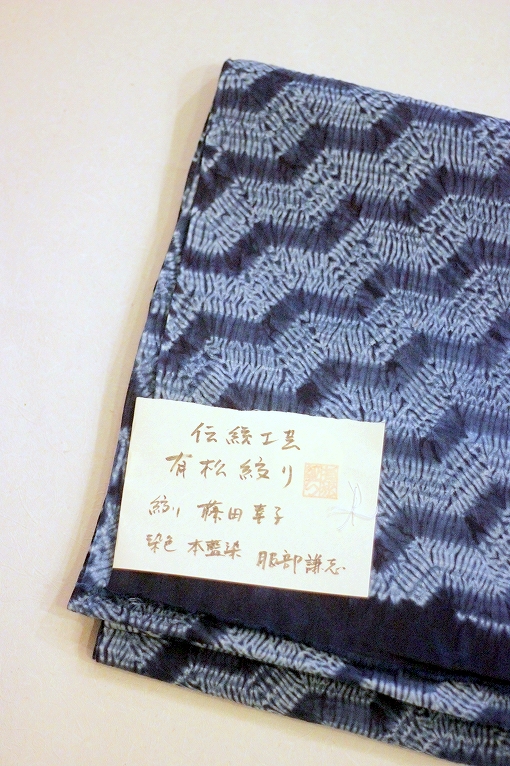 伝統工芸
有松絞り
絞り 藤田幸子
染色 本藍染 服部謙志